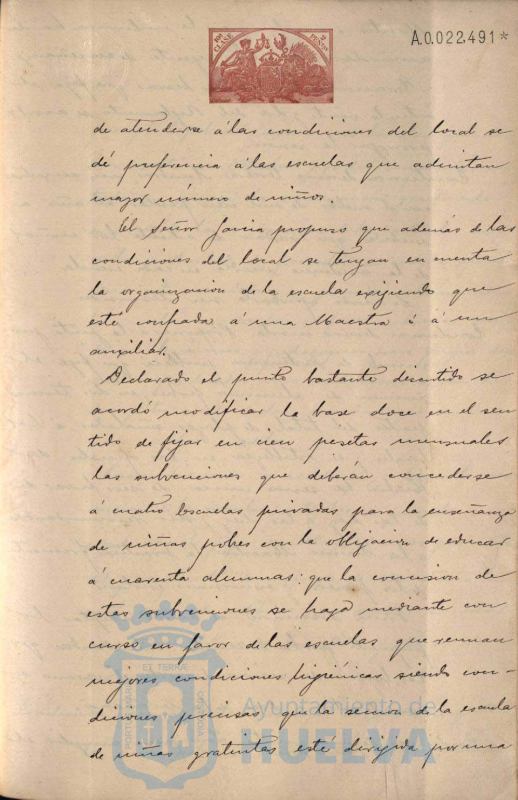 A.0.022.491*
de atenderse á las condiciones del local se
dé preferencia á las escuelas que admitan
mayor número de niños.
El Señor Garcia propuso que además de las
condiciones del local se tengan en cuenta
la organizacion de la escuela exijiendo que
esté confiada á una Maestra ó á un
auxiliar.
Declarado el punto bastante discutido se
acordó modificar la base doce en el sen
tido de fijar en cien pesetas mensuales
las subvenciones que deberán concederse
á cuatro Escuelas privadas para la enseñanza
de niñas pobres con la obligacion de educar
á cuarenta alumnas: que la concesion de
estas subvenciones se haga mediante con
curso en favor de las escuelas que reunan
mejores condiciones higiénicas siendo con-
diciones precisas que la seccion de la escuela
de niñas gratuitas esté dirigida por una
Ayuntamiento de
HUELVA